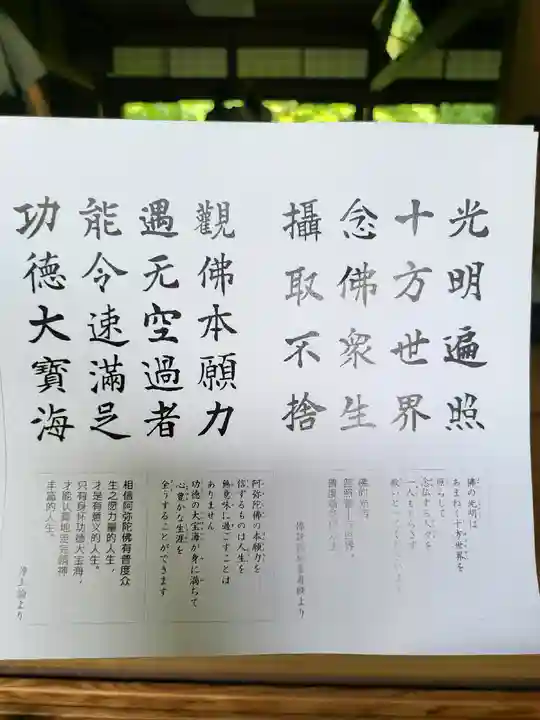 光明遍照
十方世界
念佛衆生
攝取不捨
觀佛本願力
遇无空過者
能令速滿足
功德大寶海
佛の光明は
あまねく十方世界を
照らして
念仏する人々を
一人ももらさず
阿弥陀佛の本願力を
信ずるものは人生を
無意味に過ごすことは
ありません
功徳の大宝海が身に満ちて
心豊かな生涯を
全うすることができます
相信阿弥陀佛有普度众
生之愿力量的人生，
才是有意义的人生。
只有身怀功德大宝海，
丰富的人生。
浄土論より